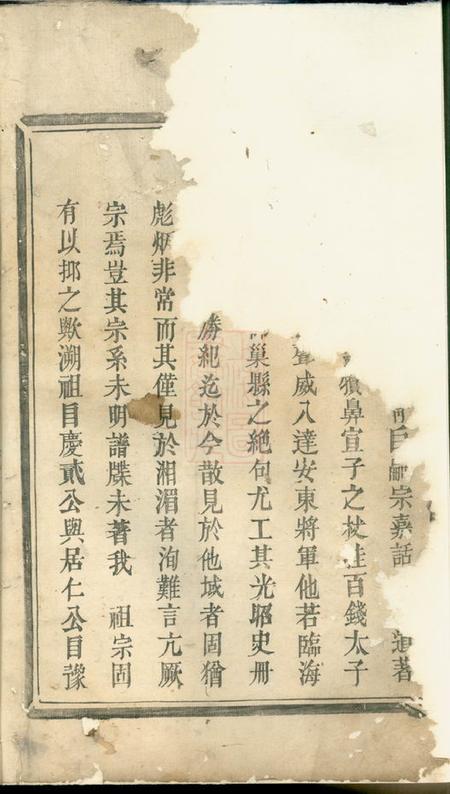 宗嘉話 著
犢鼻宣子之杖挂百錢太子
威八達安東將軍他若臨海
巢縣之絶句尤工其光昭史冊
勝紀迄於今散見於他域者固猶
彪炳非常而其僅見於湘湄者洵難言亢厥
宗焉豈其宗系未明譜牒未著我 祖宗固
有以抑之歟溯祖自慶貳公與居仁公自豫